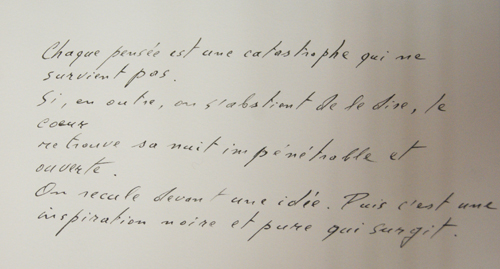 Chaque pensée est une catastrophe qui ne
survient pas.
Si, en outre, on s'abstient de le dire, le
coeur
retrouve sa nuit impénétrable et
ouverte.
On recule devant une idée. Puis c'est une
inspiration noire et pure qui surgit.